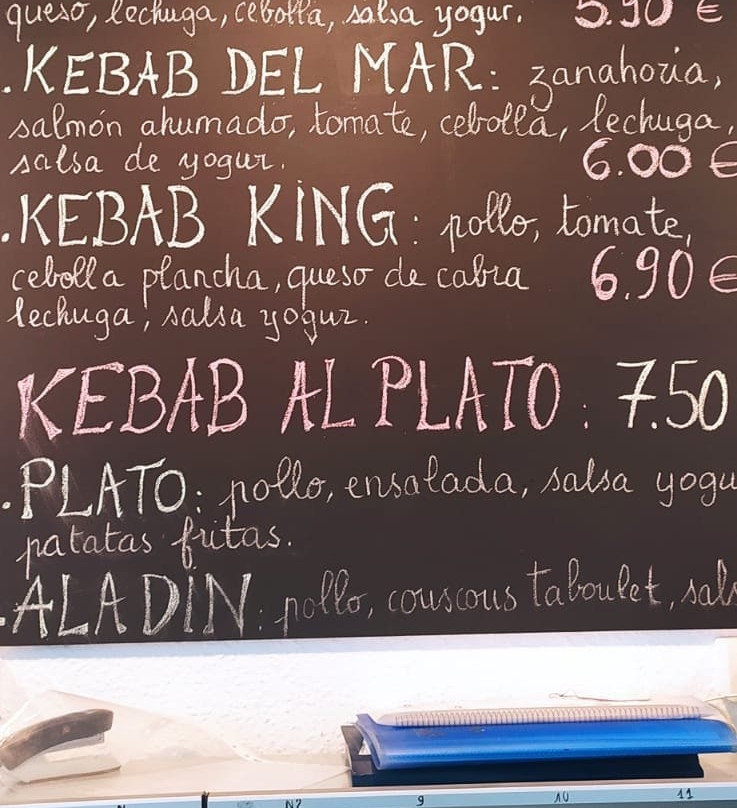 queso, lechuga, cebolla, salsa yogur. 5.90 €
.KEBAB DEL MAR: zanahoria,
salmón ahumado, tomate, cebolla, lechuga,
salsa de yogur. 6.00 €
.KEBAB KING: pollo, tomate,
cebolla plancha, queso de cabra 6.90 €
lechuga, salsa yogur.
KEBAB AL PLATO: 7.50
.PLATO: pollo, ensalada, salsa yogu
patatas fritas.
.ALADIN: pollo, couscous taboulet, sals
N2 9 10 11